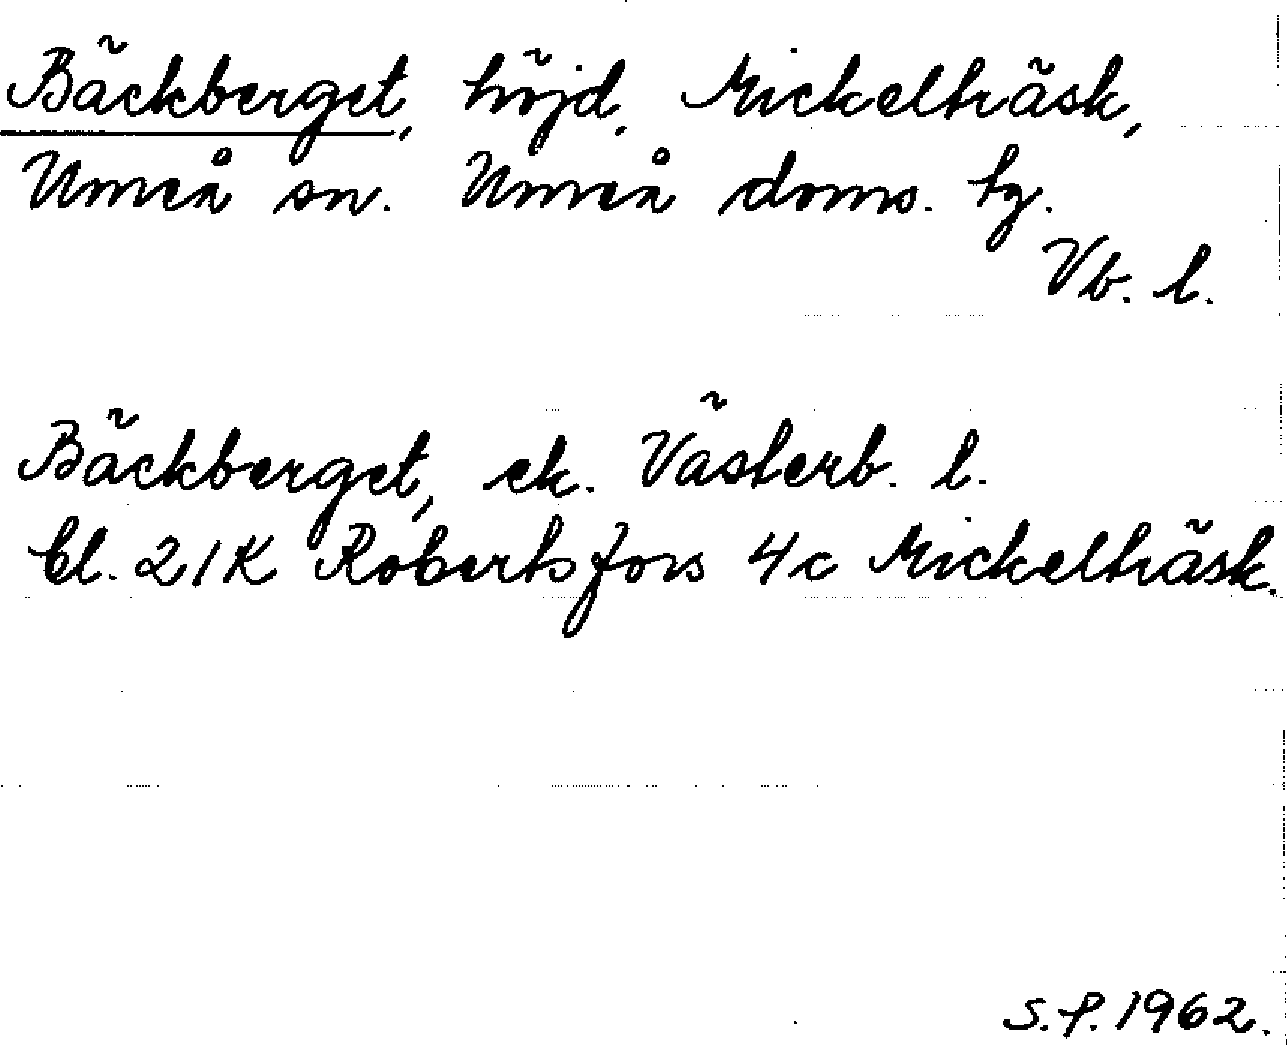 Bäckberget, höjd, Mickelträsk,
Umeå sn. Umeå doms. tg.
Vb. l.
Bäckberget, ek. Västerb. l.
bl. 21K Robertsfors 4c Mickelträsk.
S.P. 1962.